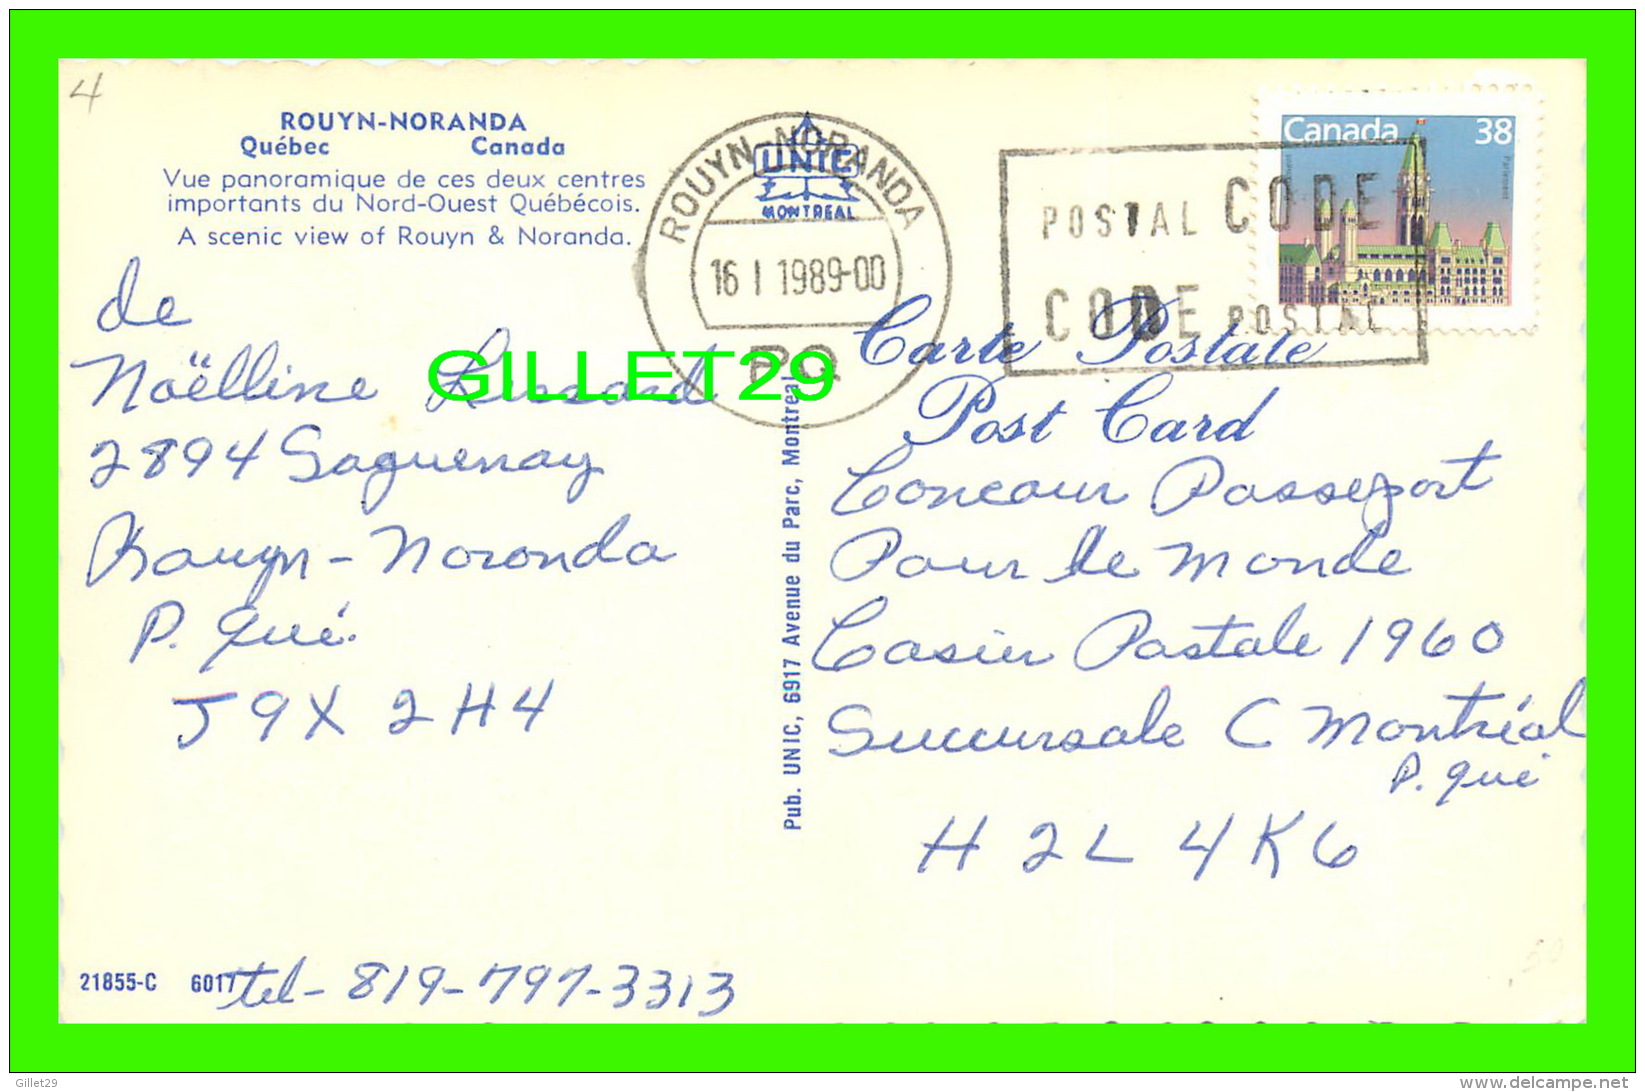 4
ROUYN-NORANDA
Québec Canada
Vue panoramique de ces deux centres
importants du Nord-Ouest Québécois.
A scenic view of Rouyn & Noranda.
de
Noëlline
2894 Saguenay
Rouyn-Noronda
P. Qué.
J9X 2H4
tel- 819-797-3313
21855-C 6017
GILLET29
ROUYN-NORANDA
16 I 1989-00
PQ
UNIC
MONTREAL
Pub. UNIC, 6917 Avenue du Parc, Montreal
POSTAL CODE
CODE POSTAL
Canada 38
Parlement
Carte Postale
Post Card
Concour Passeport
Pour le monde
Casier Postale 1960
Succursale C Montréal
P. Qué
H2L 4K6
Gillet29
http://www.delcampe.net